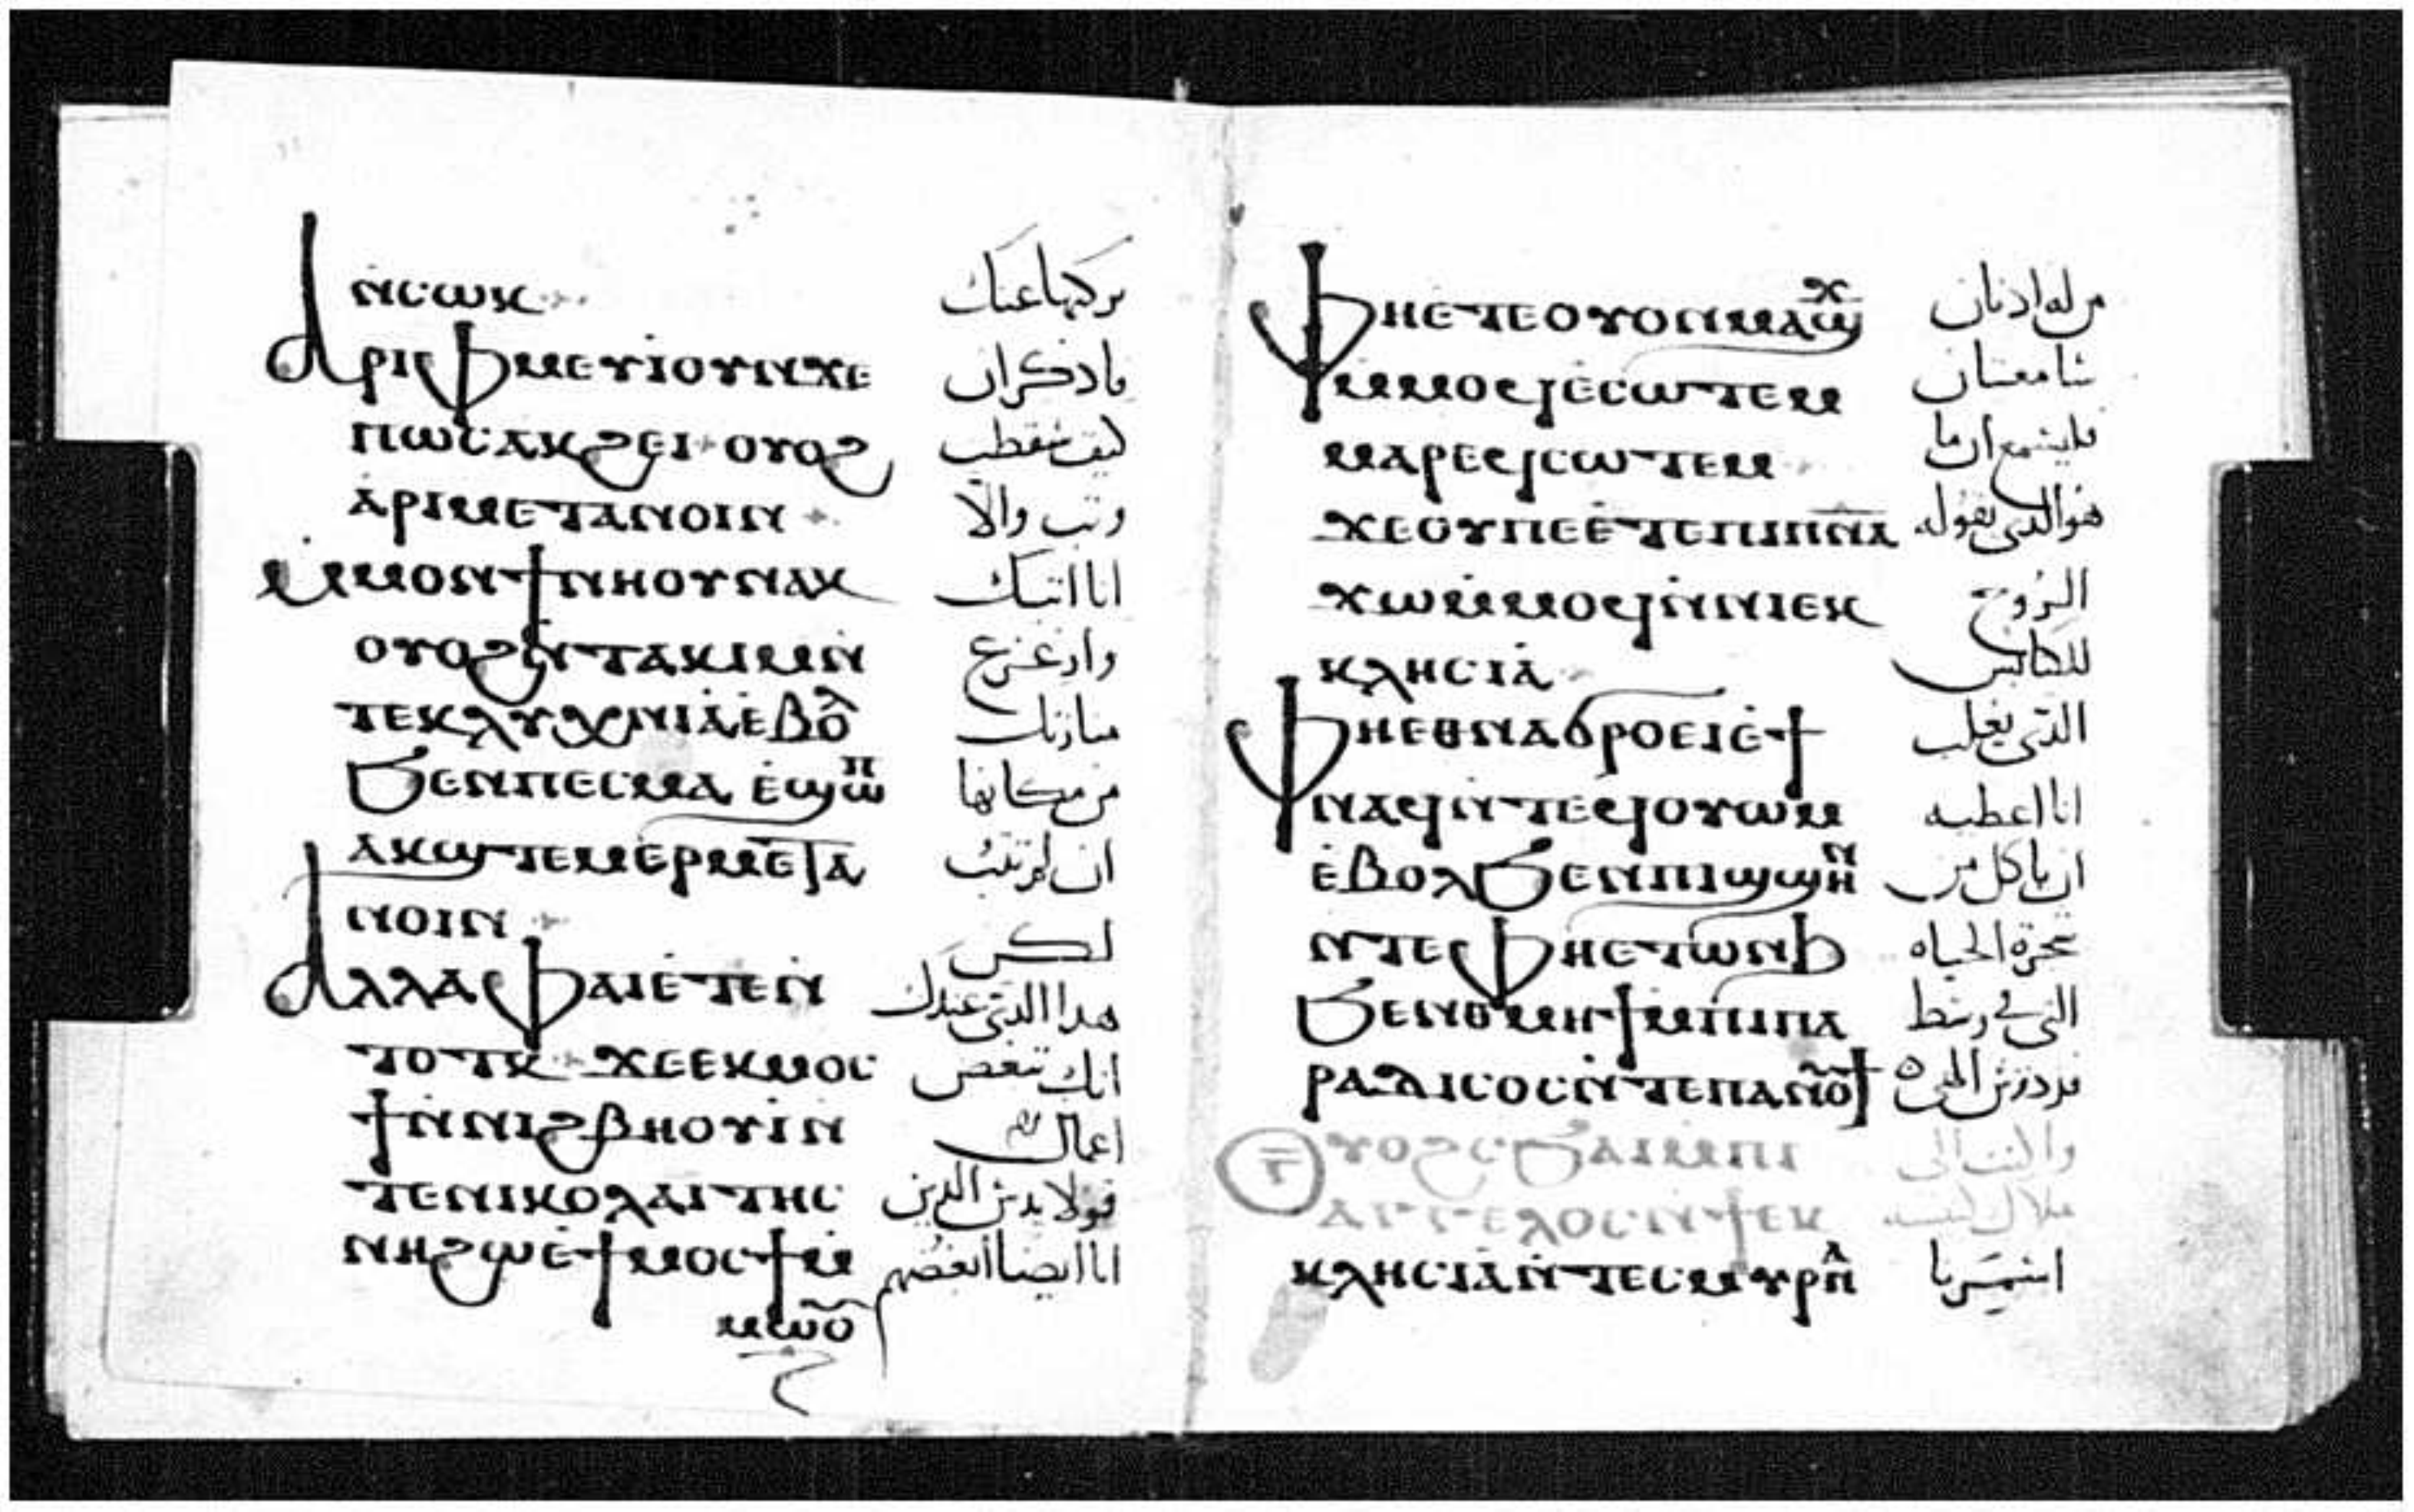 ⲛ̇ⲥⲱⲕ
تركتها عنك
ⲁⲣⲓⲫⲙⲉⲩⲓ̇ⲟⲩⲛϫⲉ
فاذكر ان
ⲡⲱⲥⲁⲕϩⲉⲓ ⲟⲩⲟϩ
كيف سقطت
ⲁ̇ⲣⲓⲙⲉⲧⲁⲛⲟⲓⲛ
وتب والا
ⲙ̇ⲙⲟⲛϯⲛⲏⲟⲩⲛⲁⲕ
انا اتيك
ⲟⲩⲟϩⲛ̇ⲧⲁⲕⲓⲙⲛ̇
وازعزع
ⲧⲉⲕⲗⲩⲭⲛⲓⲁ̇ⲉ̇ⲃⲟⲗ
منارتك
ϧⲉⲛⲡⲉⲥⲙⲁ ⲉ̇ϣⲱⲡ
من مكانها
ⲁⲕϣⲧⲉⲙⲉⲣⲙⲉⲧⲁ
ان لم تتب
ⲛⲟⲓⲛ
لكن
ⲁⲗⲗⲁⲫⲁⲓⲉ̇ⲧⲉⲛ̇
هدا الدى عندك
ⲧⲟⲧⲕ ϫⲉⲉⲕⲙⲟⲥ
انك تبغض
ϯⲛ̇ⲛⲓϩⲃⲏⲟⲩⲓ̇ⲛ̇
اعمال
ⲧⲉⲛⲓⲕⲟⲗⲁⲓ̇ⲧⲏⲥ
الدين
ⲛⲏϩⲱⲉ̇ϯⲙⲟⲥϯⲙ̇
انا ايضا ابغضهم
ⲙⲱⲟⲩ
ⲫⲏⲉ̇ⲧⲉⲟⲩⲟⲛⲙⲁϣϫ
من له ادنان
ⲙ̇ⲙⲟϥⲉ̇ⲥⲱⲧⲉⲙ
سامعتان
ⲙⲁⲣⲉϥⲥⲱⲧⲉⲙ
فليسمع ان ما
ϫⲉⲟⲩⲡⲉⲉ̇ⲧⲉⲡⲓⲡ︦ⲛ︦ⲁ︦
هو الدى يقوله
ϫⲱⲙ̇ⲙⲟϥⲛ̇ⲛⲓⲉⲕ
الروح
ⲕⲗⲏⲥⲓⲁ̇
للكنائس
ⲫⲏⲉⲑⲛⲁϭⲣⲟⲉⲓⲉ̇ϯ
الدى يغلب
ⲛⲁϥⲛ̇ⲧⲉϥⲟⲩⲱⲙ
انا اعطيه
ⲉ̇ⲃⲟⲗϧⲉⲛⲡⲓϣϣⲏⲛ
ان ياكل من
ⲛ̇ⲧⲉⲫⲏⲉⲧⲱⲛϧ
شجرة الحياه
ϧⲉⲛⲑⲙⲏϯⲙ̇ⲡⲓⲡⲁ
التى فى وسط
ⲣⲁⲇⲓⲥⲟⲥⲛ̇ⲧⲉⲡⲁⲛⲟⲩϯ
فردوس
ⲅ̅ ⲟⲩⲟϩⲥϧⲁⲓⲙ̇ⲡⲓ
واكتب الى
ⲁⲅⲅⲉⲗⲟⲥⲛ̇ϯⲉⲕ
ملاك كنيسه
ⲕⲗⲏⲥⲓⲁ̇ⲛ̇ⲧⲉⲥⲙⲩⲣⲛⲁ
اسميرنا